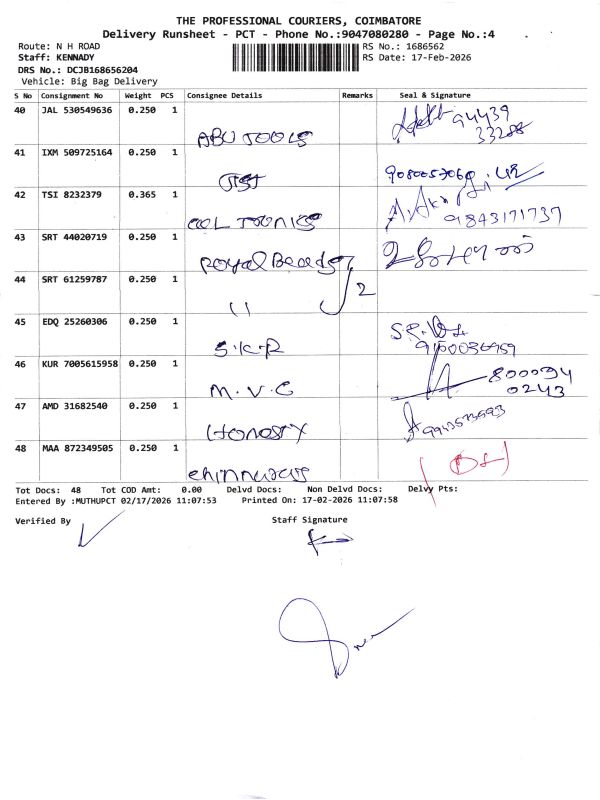 THE PROFESSIONAL COURIERS, COIMBATORE
Delivery Runsheet - PCT - Phone No.:9047080280 - Page No.:4
Route: N H ROAD RS No.: 1686562
Staff: KENNADY RS Date: 17-Feb-2026
DRS No.: DCJB168656204
Vehicle: Big Bag Delivery
S No Consignment No Weight PCS Consignee Details Remarks Seal & Signature
40 JAL 530549636 0.250 1
ABU TOOLS 94439
33288
41 IXM 509725164 0.250 1
42 TSI 8232379 0.365 1
9843171737
43 SRT 44020719 0.250 1
Royal Beads
44 SRT 61259787 0.250 1
11 2
45 EDQ 25260306 0.250 1
S.K.R
46 KUR 7005615958 0.250 1
M.V.C 800094
0243
47 AMD 31682540 0.250 1
Honesty
48 MAA 872349505 0.250 1
Tot Docs: 48 Tot COD Amt: 0.00 Delvd Docs: Non Delvd Docs: Delvy Pts:
Entered By :MUTHUPCT 02/17/2026 11:07:53 Printed On: 17-02-2026 11:07:58
Verified By Staff Signature